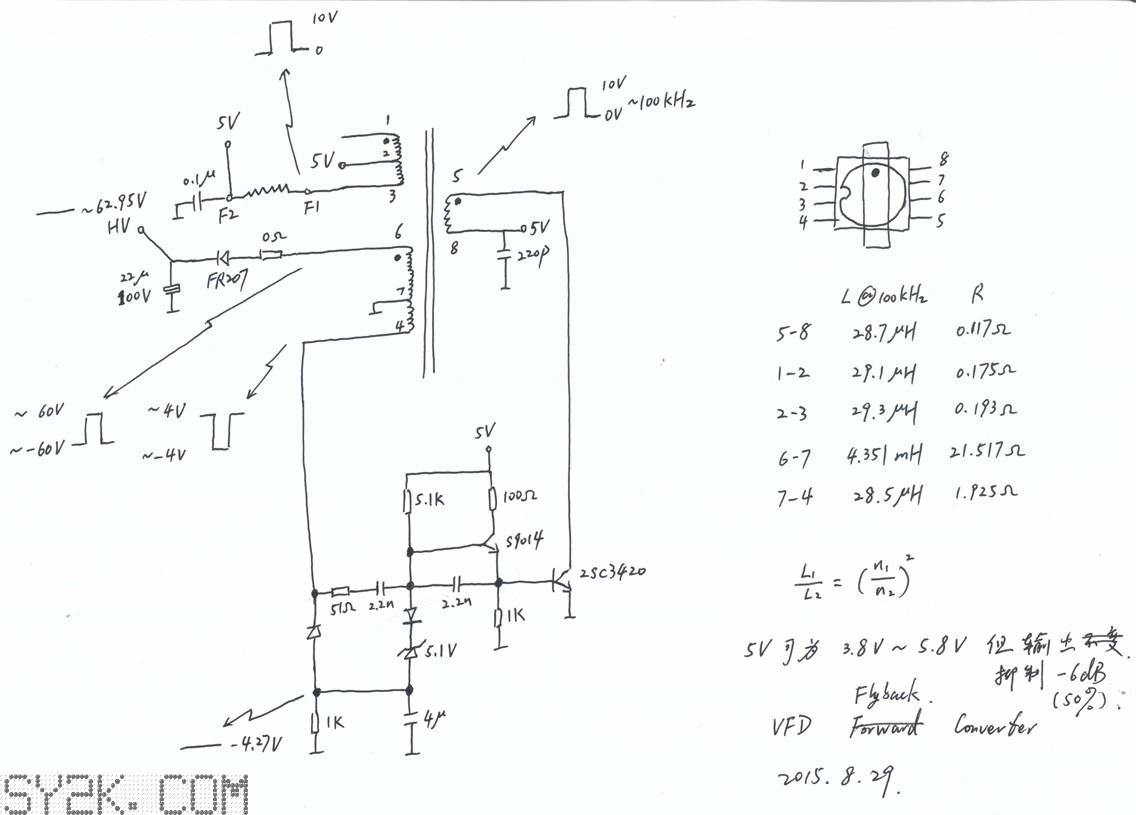 10V
0
10V
0V ~100kHz
5V
0.1μ
F2
F1
5V
1
2
3
~62.95V
HV
22μ
100V
FR207
0Ω
6
7
4
5
8
5V
220P
1
2
3
4
8
7
6
5
~60V
~-60V
~4V
~-4V
L@100kHz R
5-8 28.7μH 0.117Ω
1-2 29.1μH 0.175Ω
2-3 29.3μH 0.193Ω
6-7 4.351mH 21.517Ω
7-4 28.5μH 1.925Ω
5V
5.1K
100Ω
S9014
2SC3420
51Ω
2.2n
2.2n
1K
5.1V
1K
4μ
-4.27V
L1/L2 = (n1/n2)²
5V可为 3.8V~5.8V 但输出不变.
抑制 -6dB
(50%).
Flyback.
VFD Forward Converter
2015.8.29.
SY2K.COM